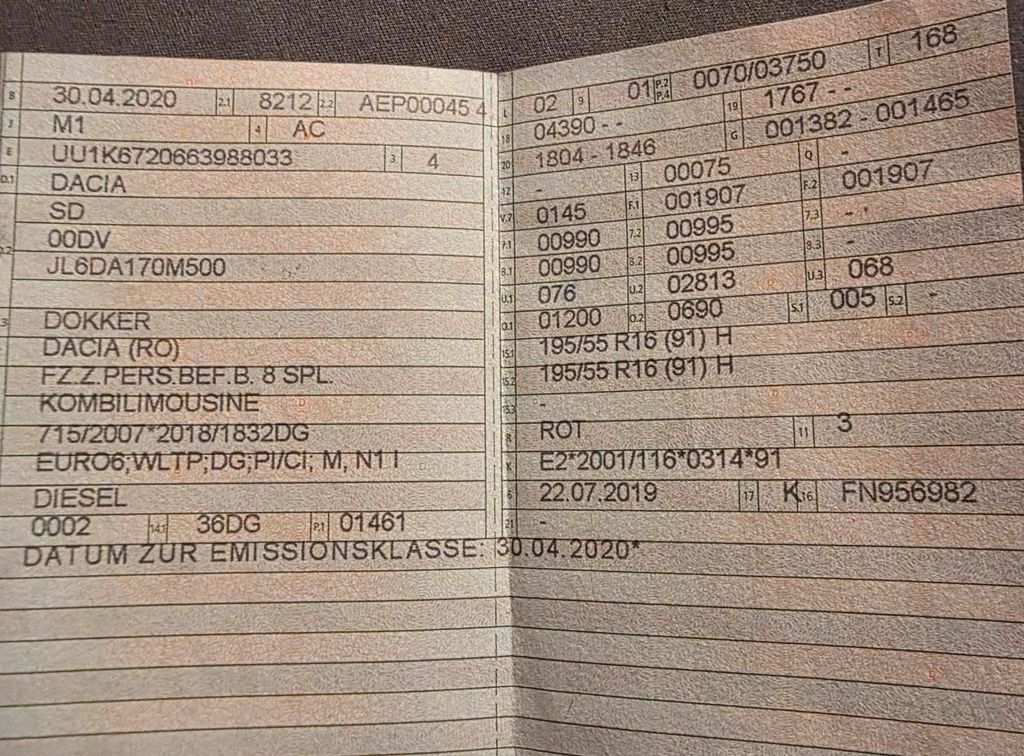 B 30.04.2020 2.1 8212 2.2 AEP00045 4
J M1 4 AC
E UU1K6720663988033 3 4
D.1 DACIA
SD
D.2 00DV
JL6DA170M500
D.3 DOKKER
DACIA (RO)
FZ.Z.PERS.BEF.B. 8 SPL.
KOMBILIMOUSINE
715/2007*2018/1832DG
EURO6;WLTP;DG;PI/CI; M, N1 I
DIESEL
0002 14.1 36DG P.1 01461
L 02 9 01 P.2 P.4 0070/03750 T 168
18 04390 - - 19 1767 - -
20 1804 - 1846 G 001382 - 001465
12 - 13 00075 Q -
V.7 0145 F.1 001907 F.2 001907
7.1 00990 7.2 00995 7.3 -
8.1 00990 8.2 00995 8.3 -
U.1 076 U.2 02813 U.3 068
O.1 01200 O.2 0690 S.1 005 S.2 -
15.1 195/55 R16 (91) H
15.2 195/55 R16 (91) H
15.3 -
R ROT 11 3
K E2*2001/116*0314*91
6 22.07.2019 17 K 16 FN956982
21 -
DATUM ZUR EMISSIONSKLASSE: 30.04.2020*